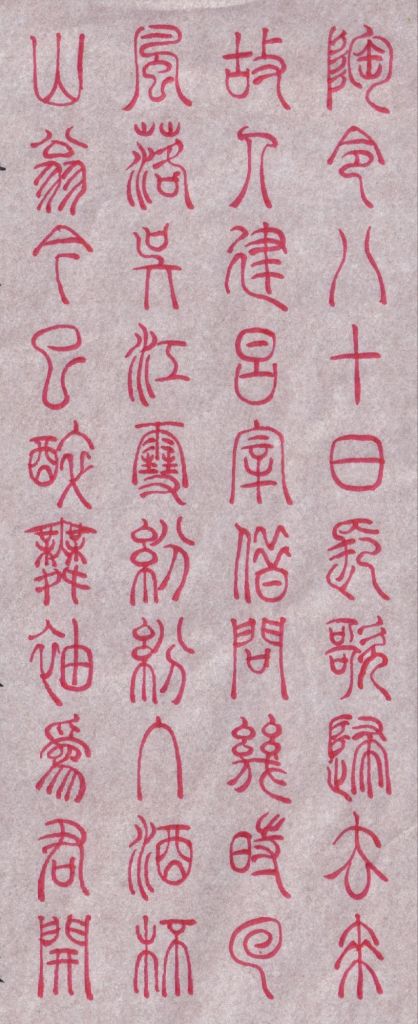 陶令八十日長歌歸去來
故人建昌宰借問幾時回
風落吳江雪紛紛入酒杯
山翁今已醉舞袖爲君開